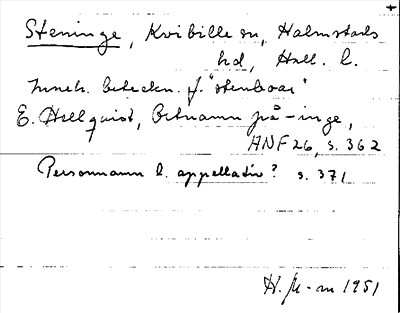 Steninge, Kvibille sn, Halmstads
hd, Hall. l.
Inneh. beteckn. f. "stenboar"
E. Hellquist, Ortnamn på -inge,
ANF 26, s. 362
Personnamn l. appellativ? s. 371
H. M-m 1951